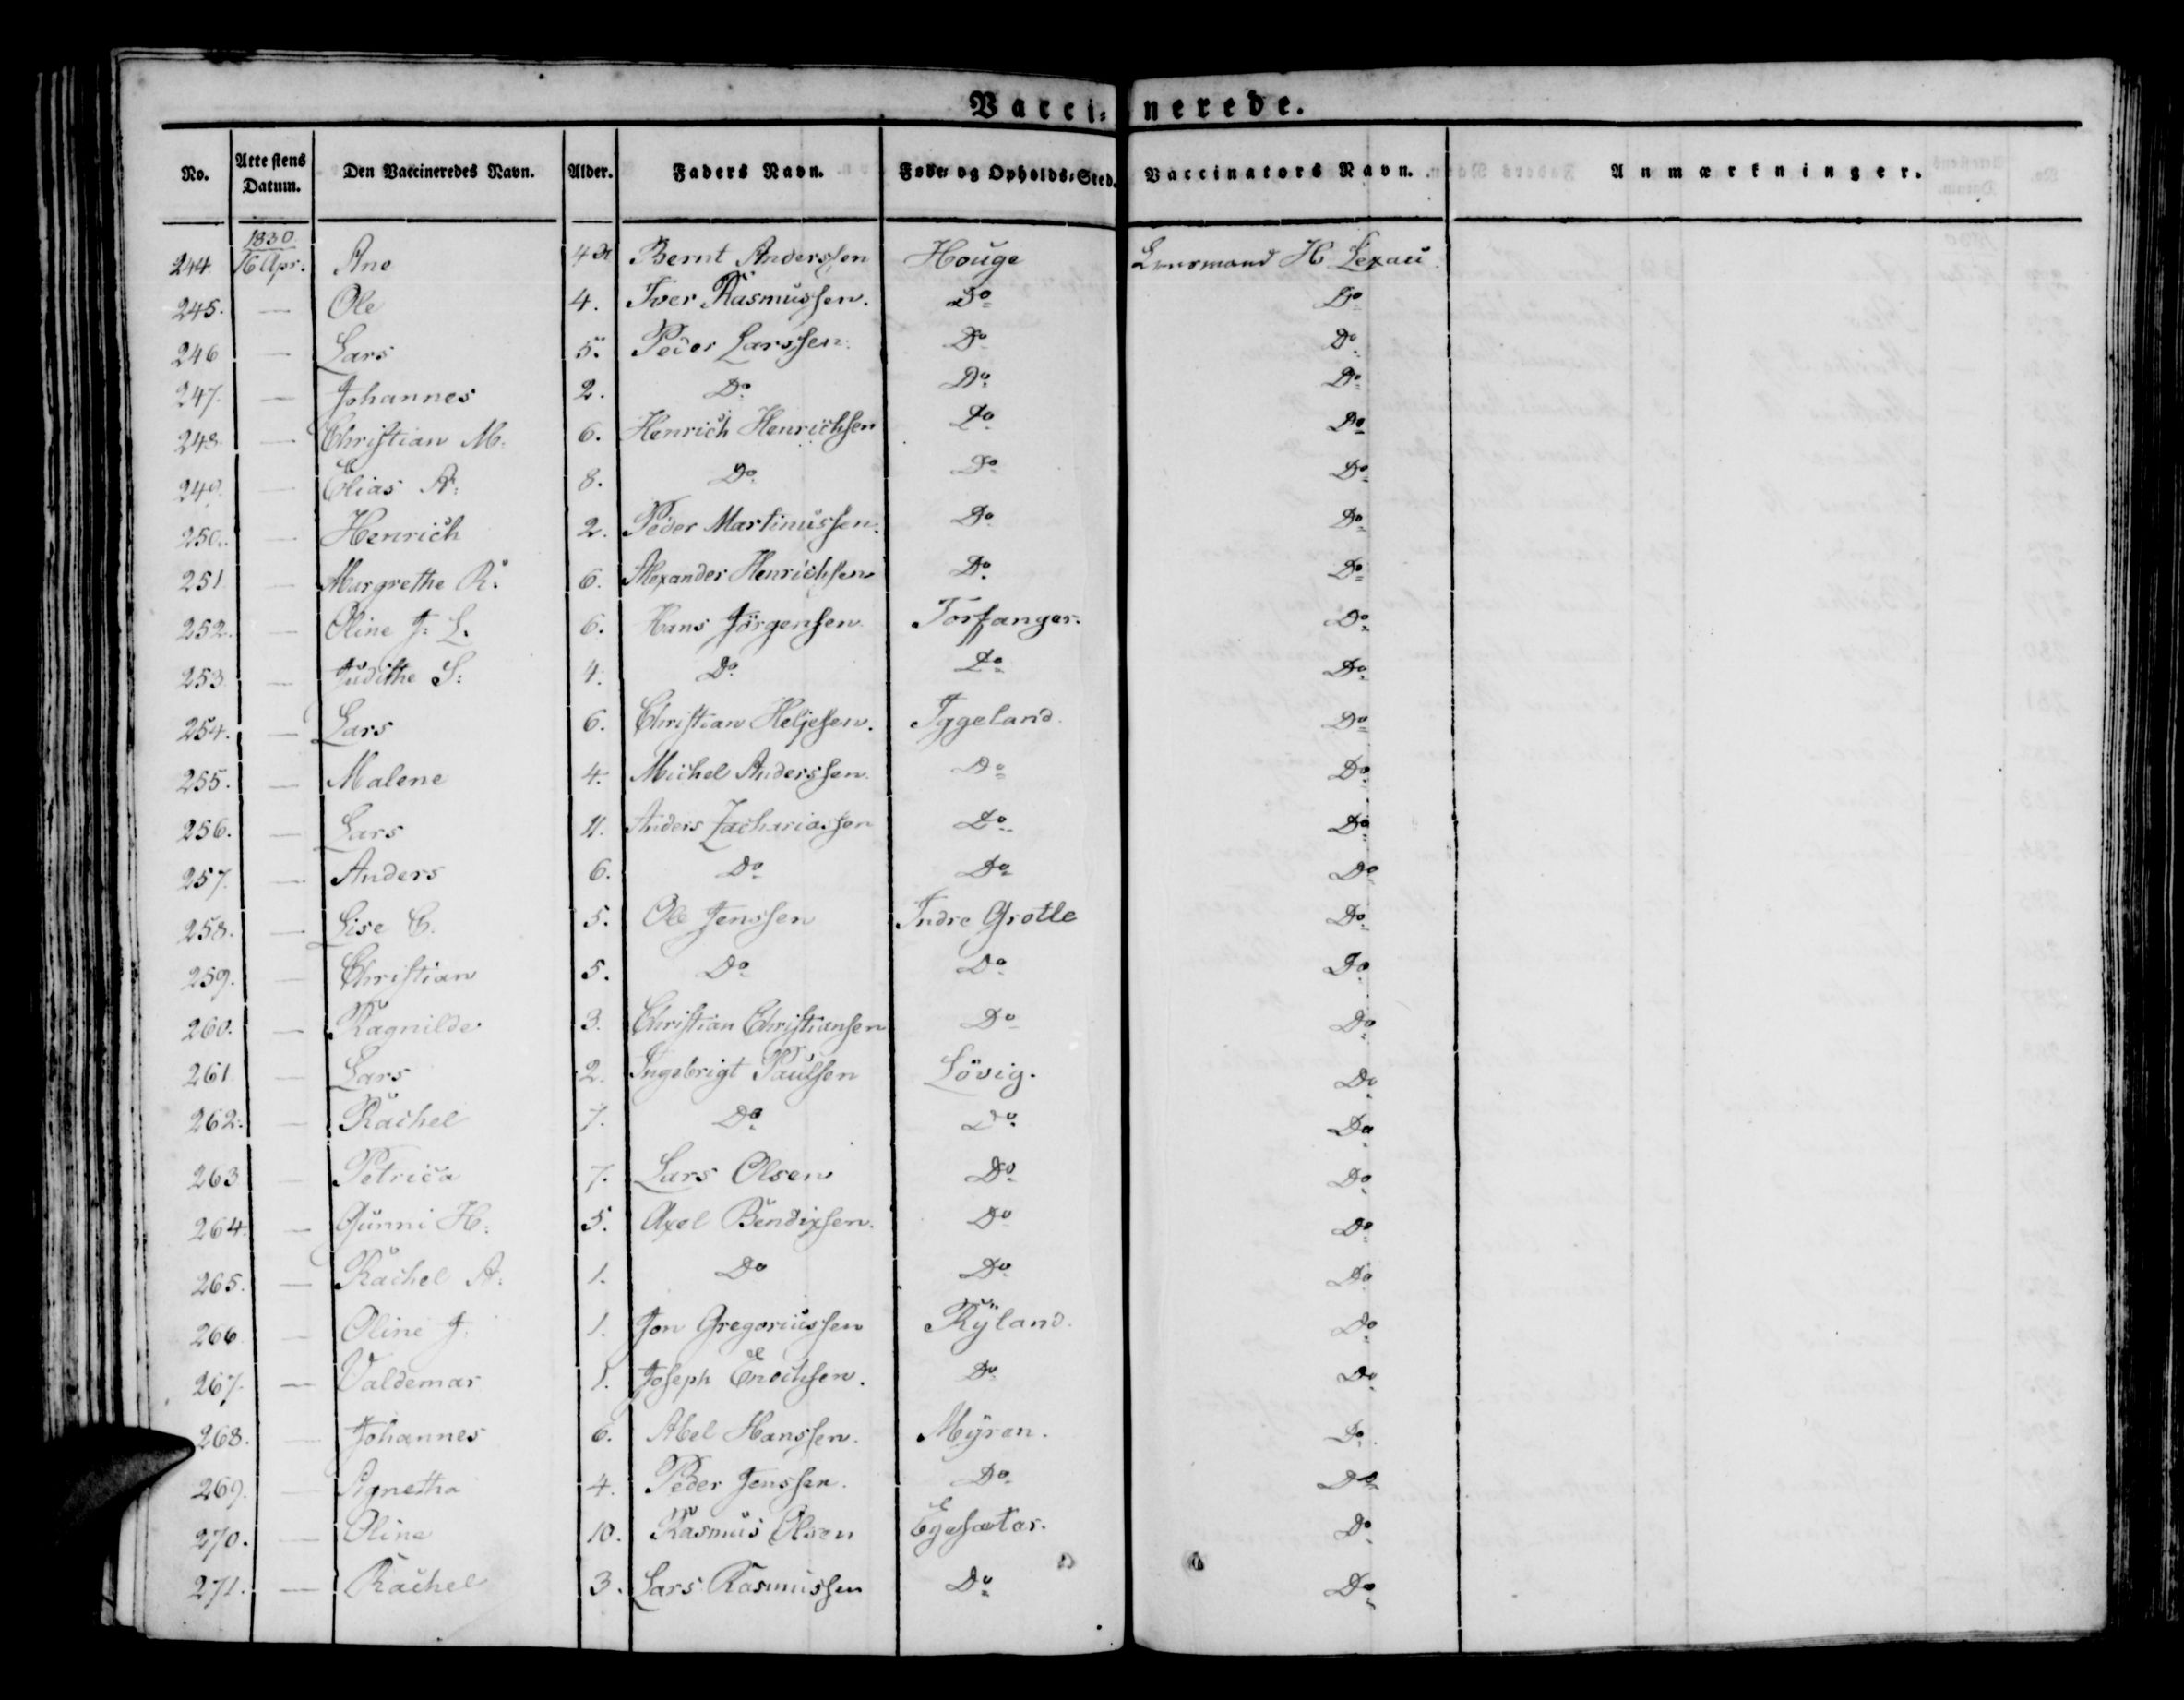 Vacci-nerede.
No. Attestens Datum. Den Vaccineredes Navn. Alder. Faders Navn. Føde- og Opholds-Sted. Vaccinators Navn. Anmærkninger.
1830
244. 16 Apr. Ane Bernt Anderssen Houge Lensmand H Lexau
245. — Ole 4. Iver Rasmussen. Do Do
246 — Lars 5. Peder Larssen. Do Do
247. — Johannes 2. Do Do Do
248. — Christian M: 6. Henrich Henrichsen Do Do
249. — Elias A: 8. Do Do Do
250. — Henrich 2. Peder Martinussen. Do Do
251 — Margrethe R: 6. Alexander Henrichsen Do Do
252. — Oline J: L. 6. Hans Jörgensen Torfanger. Do
253 — Judithe S: 4. Do Do Do
254. — Lars 6. Christian Heljesen. Iggeland. Do
255. — Malene 4. Michel Anderssen. Do Do
256. — Lars 11. Anders Zachariassen Do Do
257. — Anders 6. Do Do Do
258. — Lise C. 5. Ole Jenssen Indre Grotle Do
259. — Christian 5. Do Do Do
260. — Ragnilde 3. Christian Christiansen Do Do
261 — Lars 2. Ingebrigt Paulsen Lövig. Do
262. — Rachel 7. Do Do Do
263 — Petrica 7. Lars Olsen Do Do
264. — Gunni H: 5. Axel Bendixsen. Do Do
265. — Rachel A: 1. Do Do Do
266 — Oline J. 1. Jon Gregoriussen Rÿland. Do
267. — Valdemar 1. Joseph Enochsen. Do Do
268. — Johannes 6. Abel Hanssen. Mÿren. Do
269. — Agnetha 4. Peder Jenssen. Do Do
270. — Oline 10. Rasmus Olsen Egesæter. Do
271. — Rachel 3. Lars Rasmussen Do Do